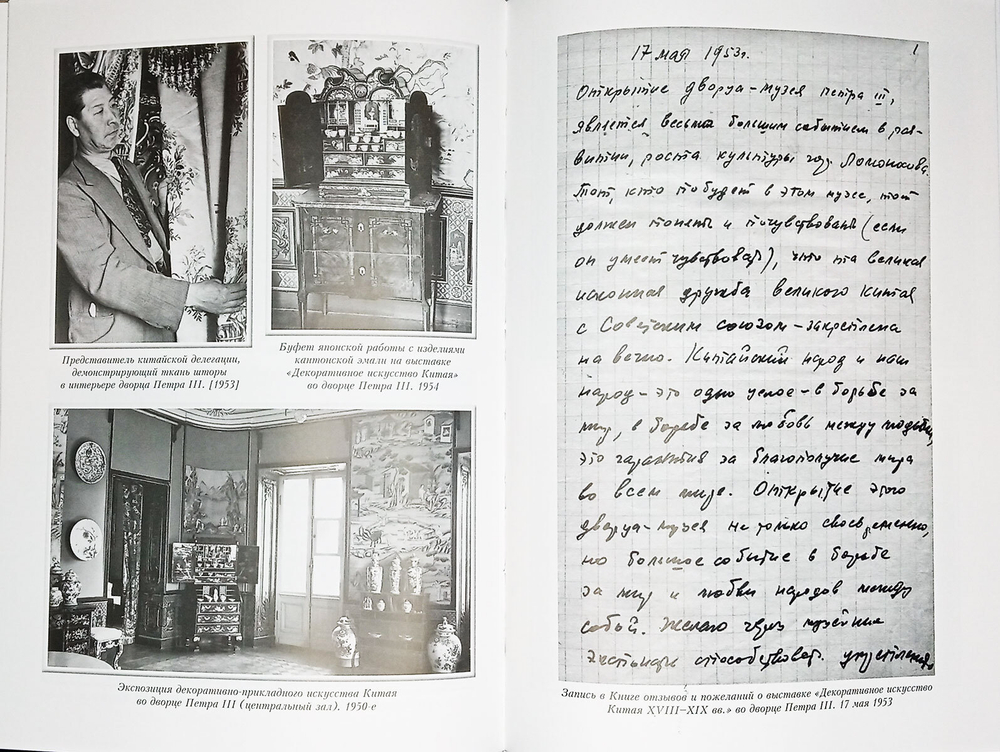 Представитель китайской делегации,
демонстрирующий ткань шторы
в интерьере дворца Петра III. [1953]
Буфет японской работы с изделиями
кантонской эмали на выставке
«Декоративное искусство Китая»
во дворце Петра III. 1954
Экспозиция декоративно-прикладного искусства Китая
во дворце Петра III (центральный зал). 1950-е
1
17 мая 1953г.
Открытие дворца-музея петра III,
является весьма большим событием в раз-
витии, роста культуры гор. Ломоносова.
Тот, кто побудет в этом музее, тот
должен понять и почувствовать (если
он умеет чувствовать), что эта великая
исконная дружба великого Китая
с Советским союзом – закреплена
на вечно. Китайский народ и наш
народ – это одно целое – в борьбе за
мир, в борьбе за любовь между людьми,
это гарантия за благополучие мира
во всем мире. Открытие этого
дворца-музея не только своевременно,
но большое событие в борьбе
за мир и любви народов между
собой. Желаю через музейные
экспонаты способствовать укреплению
Запись в Книге отзывов и пожеланий о выставке «Декоративное искусство
Китая XVIII–XIX вв.» во дворце Петра III. 17 мая 1953